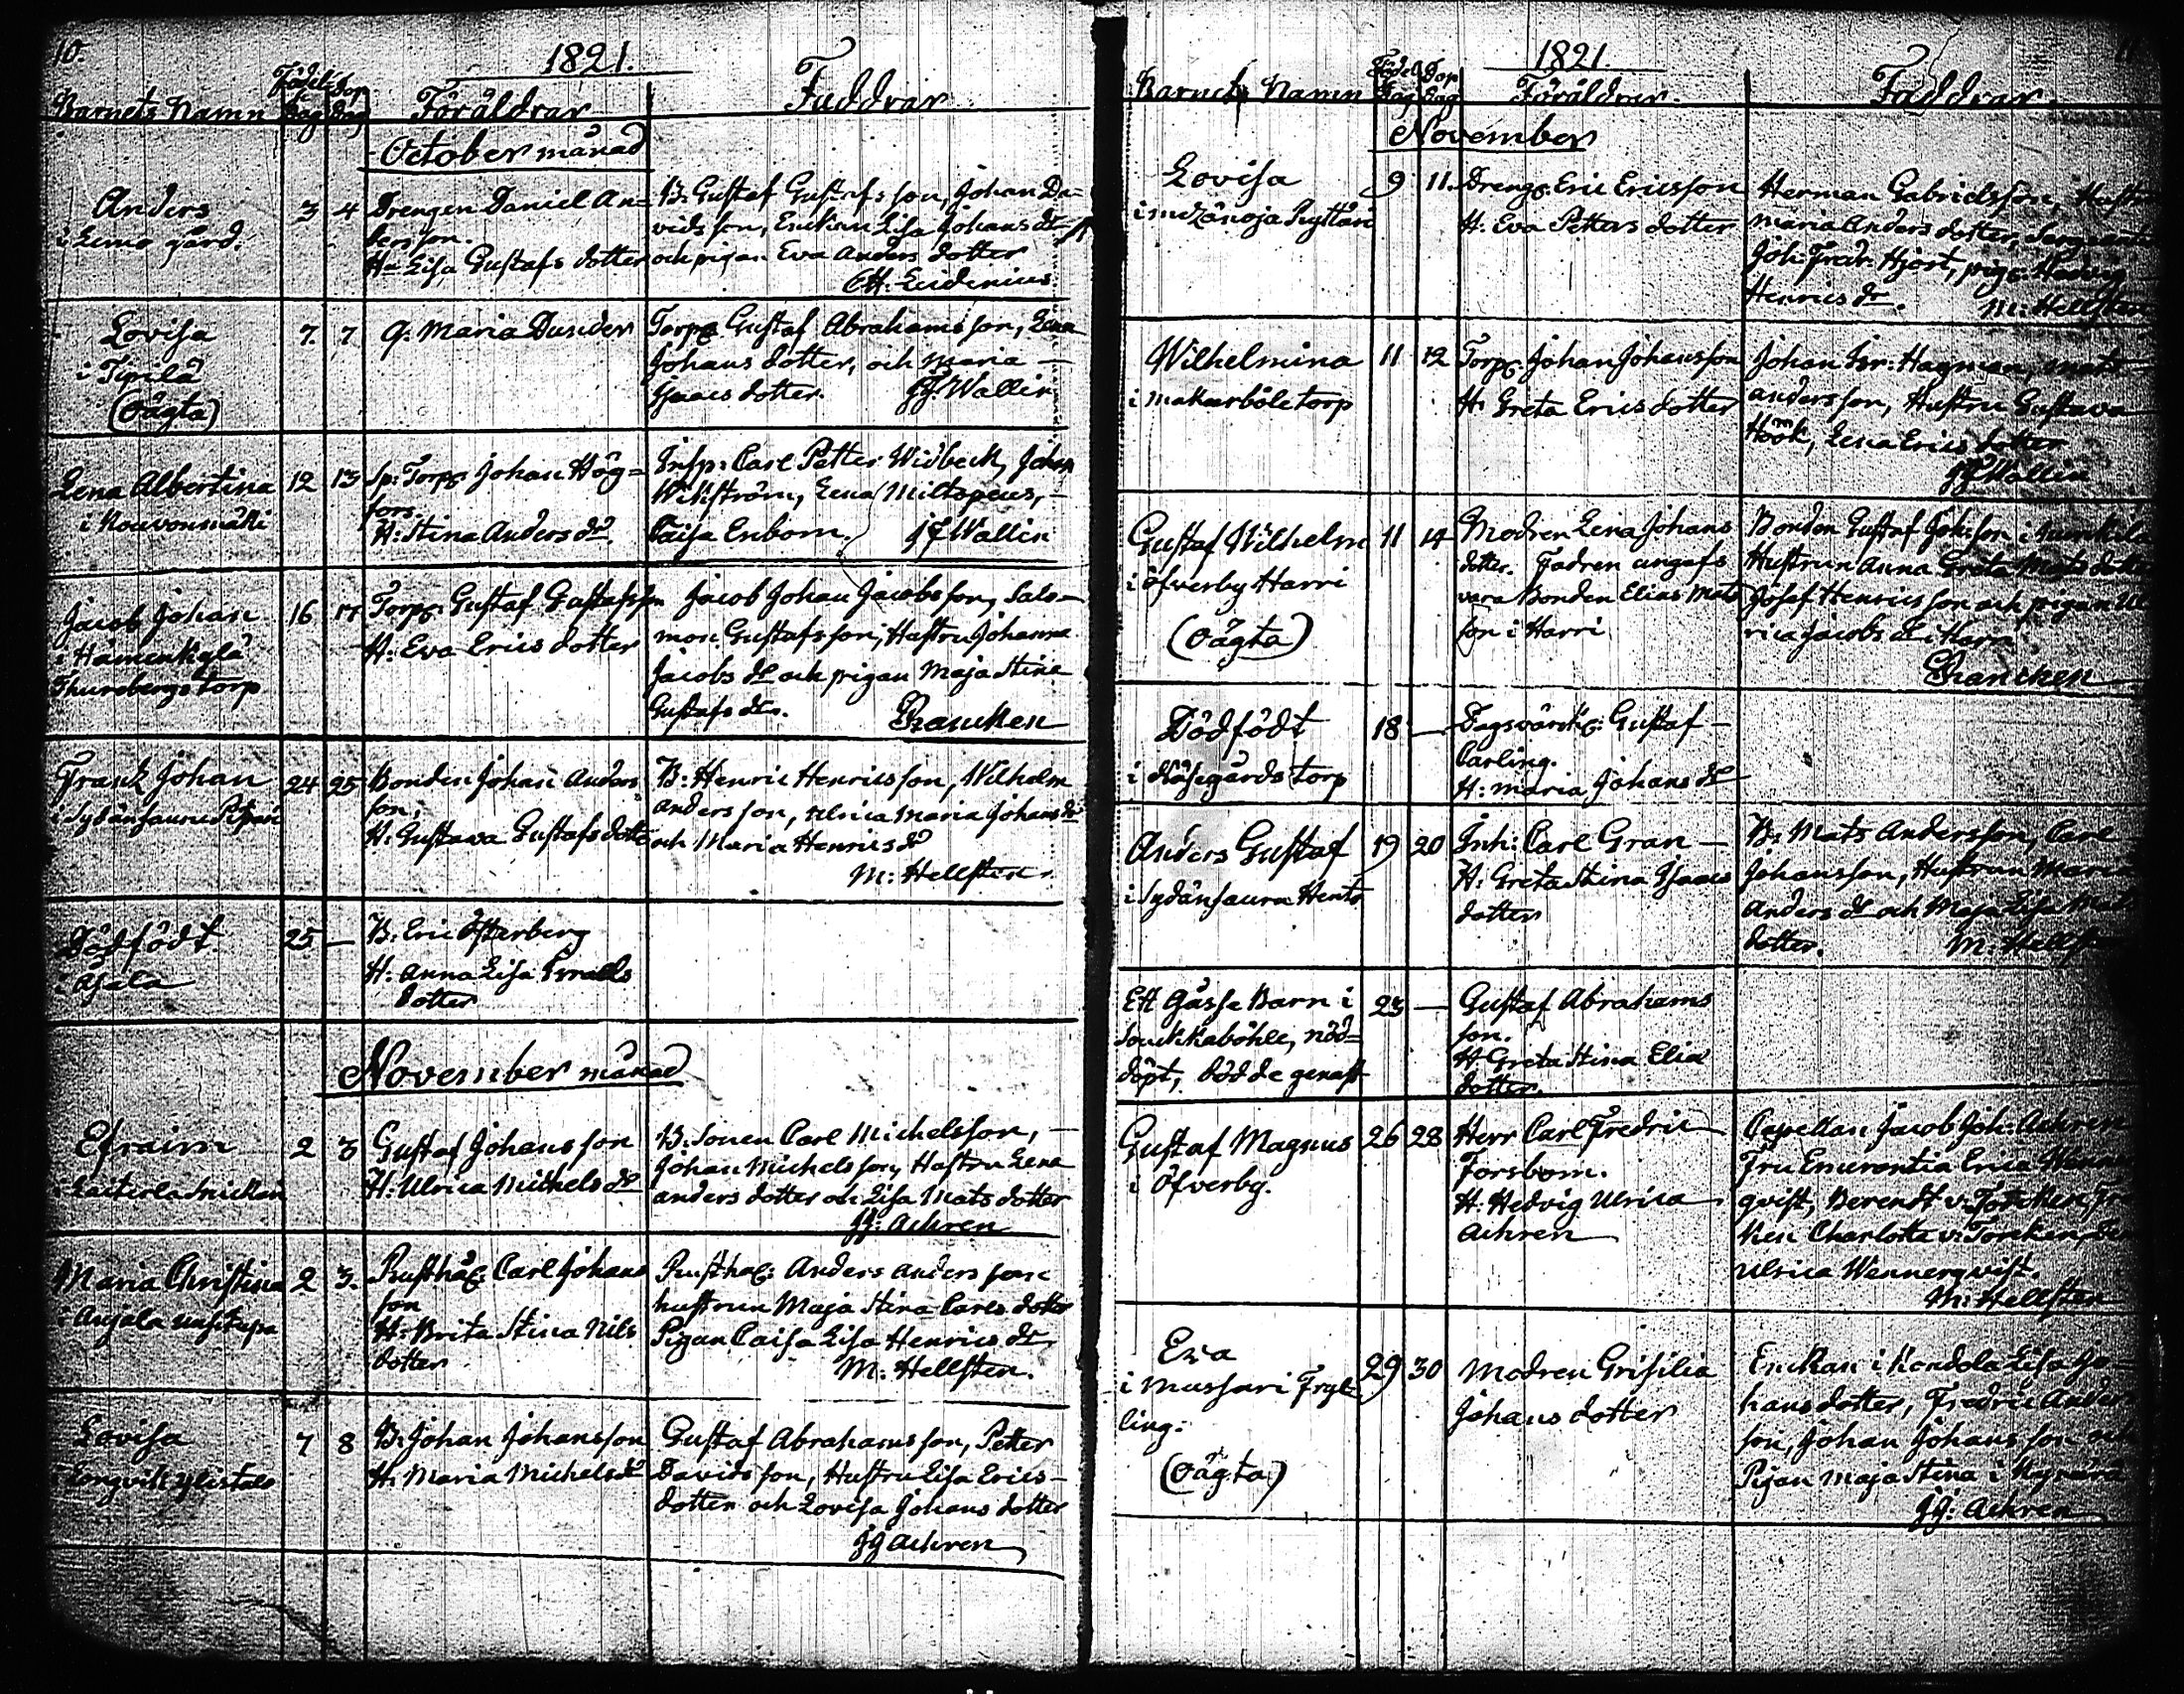 10.
1821.
Barnets Namn Födels Dag Dop Dag Föräldrar Faddrar
October månad
Anders
i Lemo gård.
3 4
Drengen Daniel An=
dersson.
H: Lisa Gustafs dotter
B. Gustaf Gustafsson, Johan Da=
vids son, Enckan Lisa Johans dr
och pigan Eva Anders dotter
Lovisa
i Tpilä
(oägta)
7. 7
q. Maria Dunder
Torp. Gustaf Abrahamsson, Lena
Johans dotter, och Maria —
Isaacs dotter. JF. Wallin
Lena Albertina
12 13
Sp: Torp. Johan Hög=
fors.
H: Stina Anders dr.
Insp: Carl Petter Widbeck, Johan
Wikström, Lena Miltopeus, —
Caisa Enbom. JF Wallin
Jacob Johan
i Hämenkylä
Thuresbergs torp
16 17
Torp. Gustaf Gustafsson
H: Eva Erics dotter
Jacob Johan Jacobsson, Salo-
mon Gustafsson, Hustru Johanna
Jacobs dr och pigan Maja Stina
Gustafs dr. Prancken
Frank Johan
24 25
Bonden Johan Anders
son,
H. Gustava Gustafs dotter
B: Henric Henricsson, Wilhelm
Andersson, Ulrica Maria Johans dr
och Maria Henrics dr
M: Hellsten.
Dödfödt
i Ajala
25 —
B: Eric Österberg
H: Anna Lisa
dotter
November månad
Efraim
2 3
Gustaf Johansson
H: Ulrica Michels dr
B. Sonen Carl Michelsson, —
Johan Michelsson, Hustru Lena
Anders dotter och Lisa Mats dotter
JG: Achren
Maria Christina
i Anjala
2 3.
Rusthål: Carl Johans
son
H: Brita Stina Nils
dotter
Rusthål: Anders Andersson
hustrun Maja Stina Carls dotter
Pigan Caisa Lisa Henrics dr
M: Hellsten.
Lovisa
7 8
B: Johan Johansson
H: Maria Michels dr
Gustaf Abrahamsson, Petter
Davidsson, Hustru Lisa Erics —
dotter och Lovisa Johans dotter
JG Achren
1821.
Barnets Namn Födels Dag Dop Dag Föräldrar. Faddrar.
November
Lovisa
9 11.
Dreng. Eric Ericsson
H: Eva Petters dotter
Herman Gabrielsson, Hustru
Maria Anders dotter,
Joh: Fredr. Hjort, pig.
Henrics dr. M: Hellsten
Wilhelmina
i Makarböle torp
11 12
Torp. Johan Johansson
H: Greta Erics dotter
Johan Isr: Hagman, Mats
Andersson, Hustru Gustava
Höök, Lena Erics dotter
JF Wallin
Gustaf Wilhelm
i Öfverby Harri
(oägta)
11 14
Modren Lena Johans
dotter. Fadren angafs
vara Bonden Elias Mats
son i Harri
Bonden Gustaf Joh:son i
Hustrun Anna Greta Mats dotter
Josef Henricsson och pigan Ul
rica Jacobs dr i Harri
Prancken
Dödfödt
18 —
Dagsvärsk: Gustaf —
Carling.
H: Maria Johans dr
Anders Gustaf
19 20
Inh: Carl Gran —
H: Greta Stina Isaacs
dotter
B: Mats Andersson, Carl
Johansson, Hustrun Maria
Anders dr och Maja Lisa Mats
dotter. M: Hellsten
Ett Gåsse Barn i
Souckkaböhle, nöd=
döpt, dödde genast
23 —
Gustaf Abrahams
son.
H Greta Stina Elia
dotter.
Gustaf Magnus
i Öfverby.
26 28
Herr Carl Fredric
Forsbom.
H: Hedvig Ulrica
Achren
Capellan Jacob Joh: Achren
Fru Emerentia Erica Wenner
qvist, Berendt v: Torcken, Frö
ken Charlotta v: Torcken,
Ulrica Wennerqvist.
M: Hellsten
Eva
i Mussari Fryt
ling.
(oägta)
29 30
Modren Grisilia
Johans dotter
Enckan i Kondola Lisa Jo=
hans dotter, Fredric Anders
son, Johan Johansson och
Pigan Maja Stina i
JG: Achren